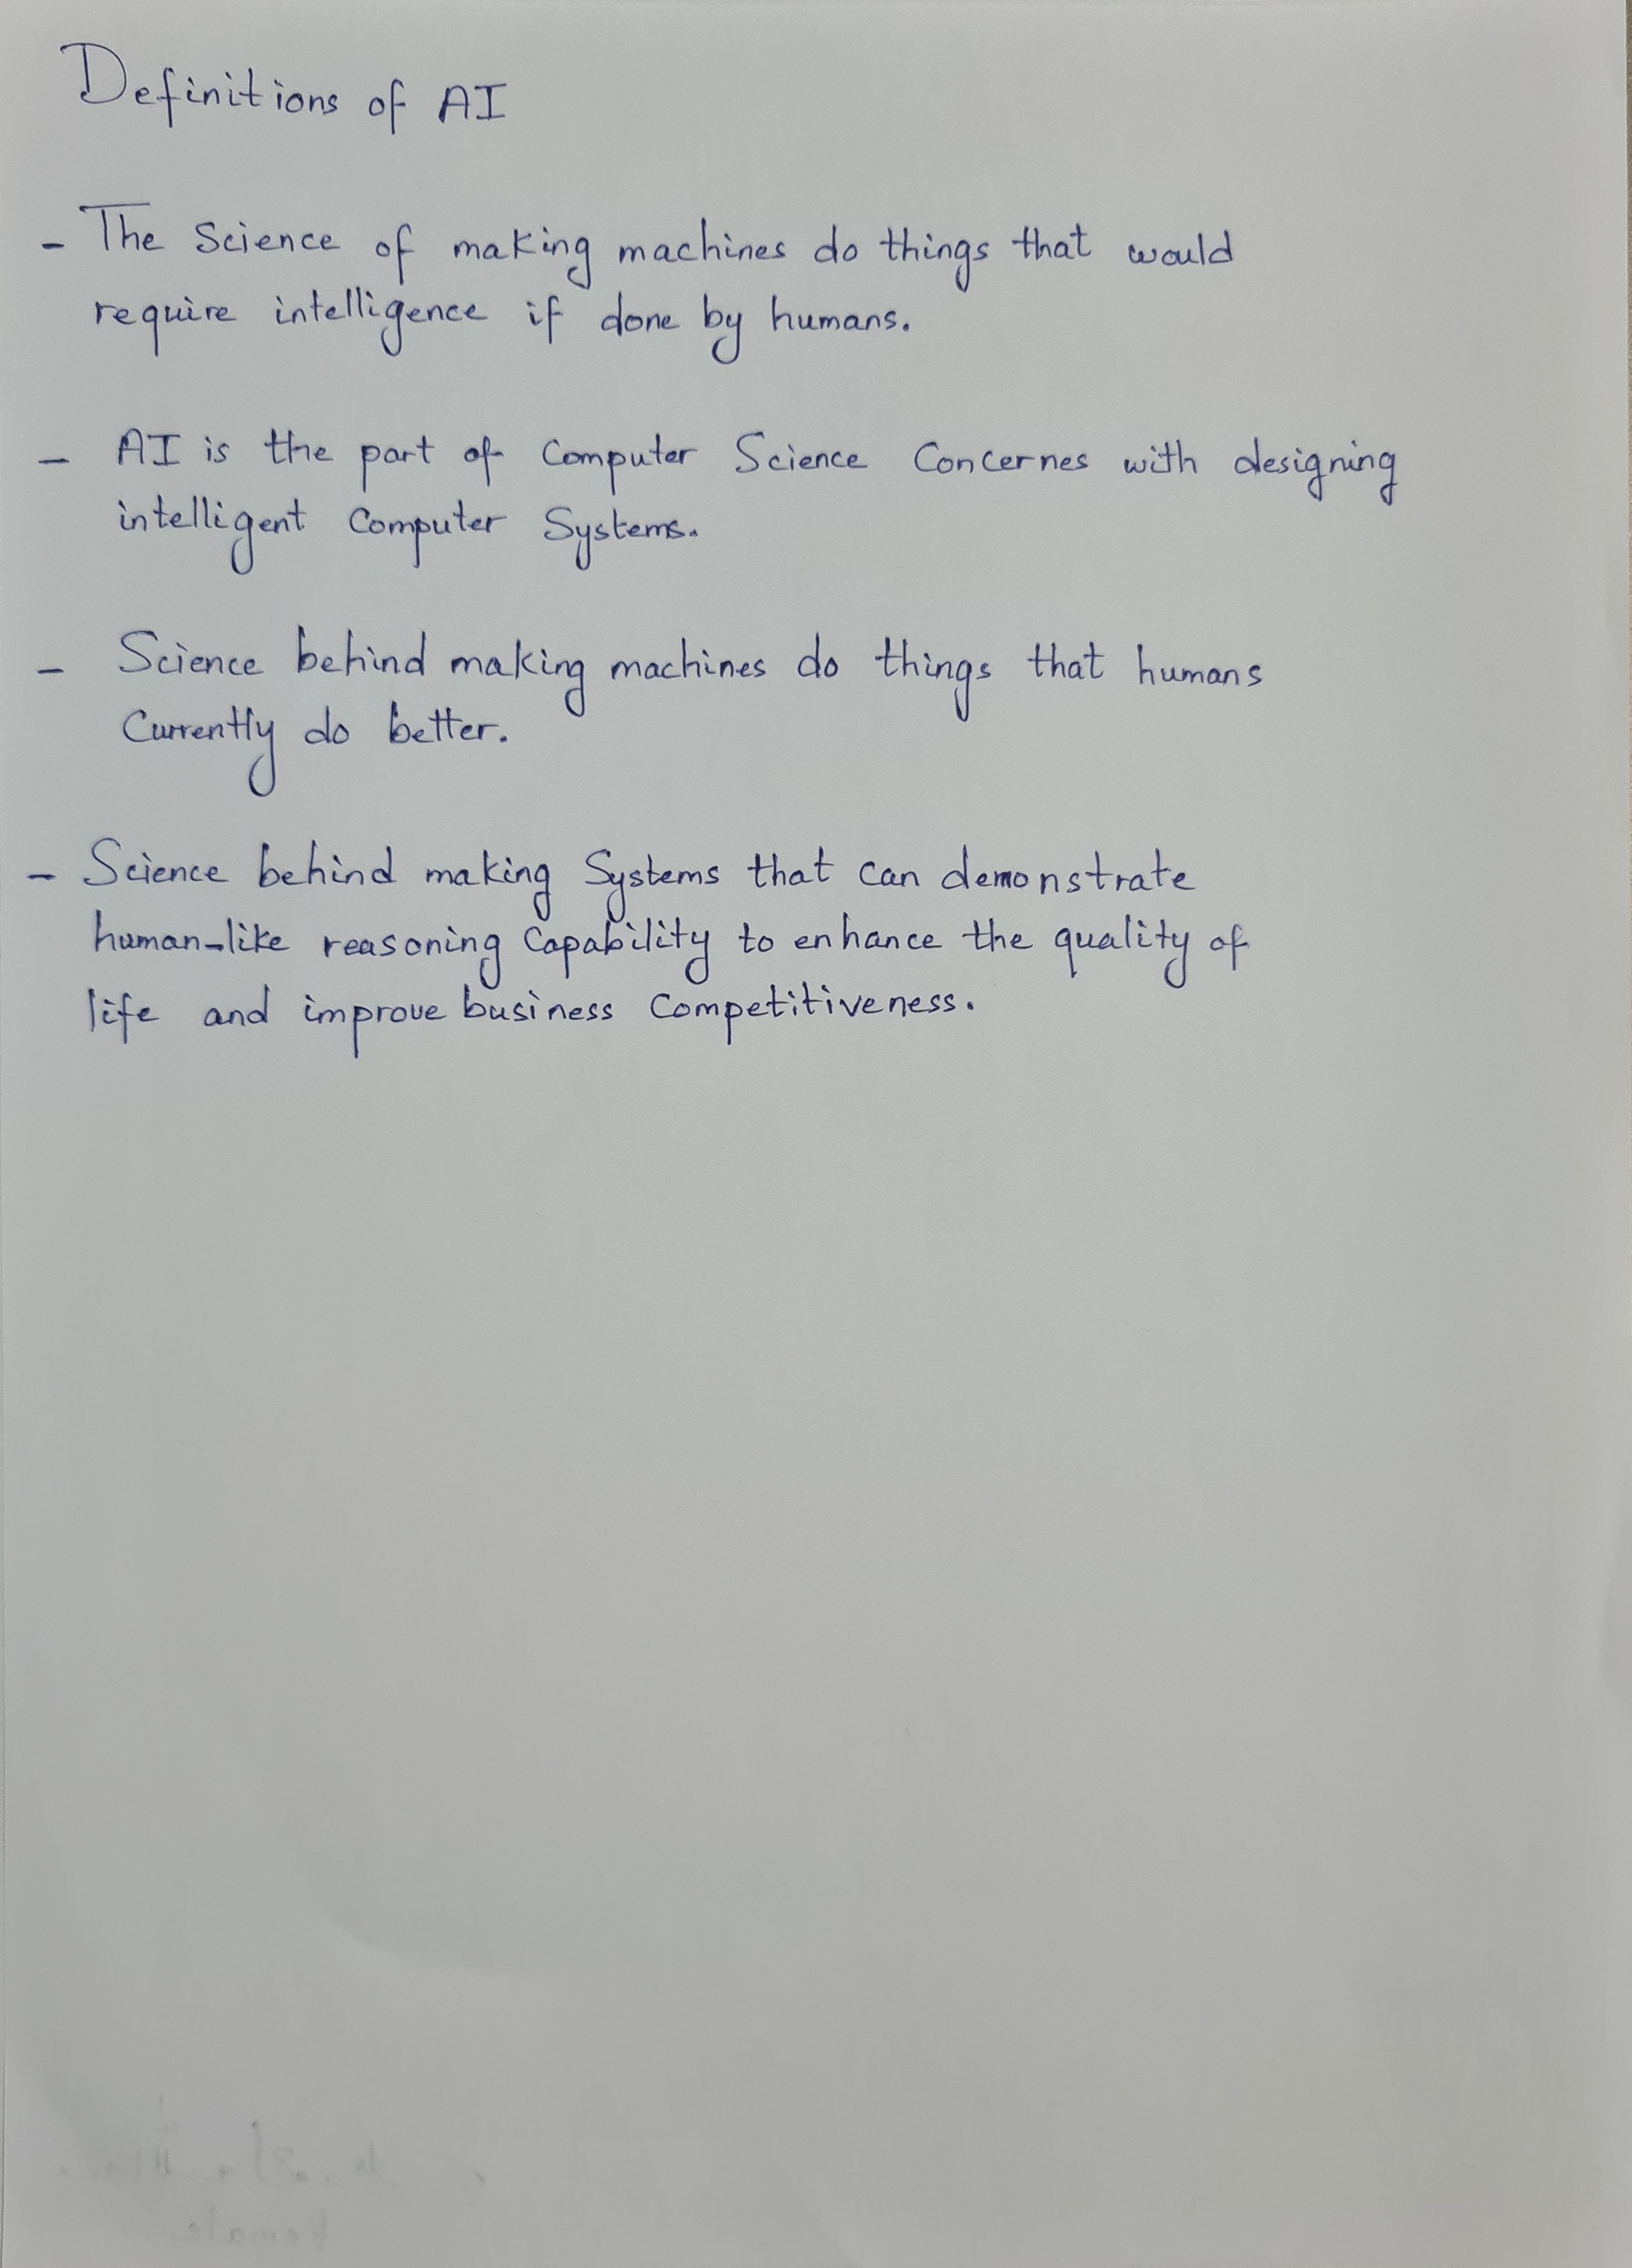 Definitions of AI
- The Science of making machines do things that would
require intelligence if done by humans.
- AI is the part of Computer Science Concernes with designing
intelligent Computer Systems.
- Science behind making machines do things that humans
Currently do better.
- Science behind making Systems that can demonstrate
human-like reasoning Capability to enhance the quality of
life and improve business Competitiveness.